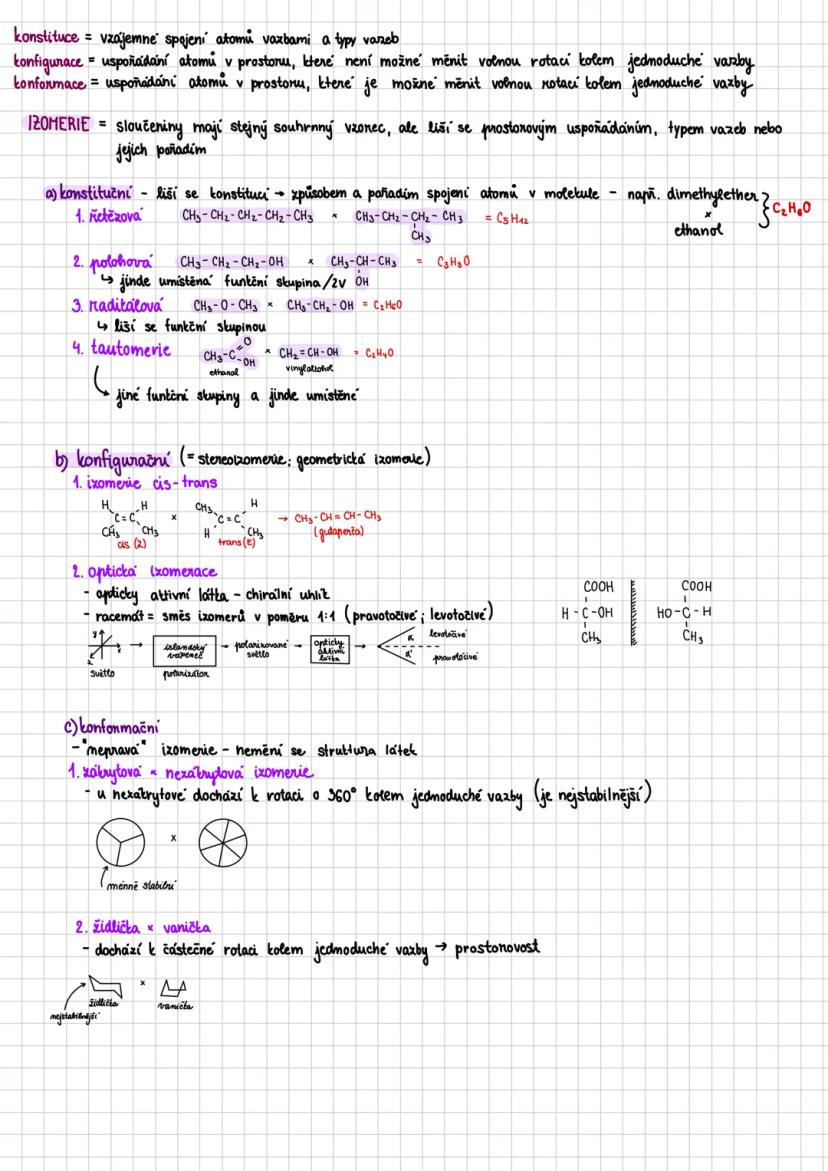 konstituce = vzájemné spojení atomů vazbami a typy vazeb
konfigurace = uspořádání atomů v prostoru, které není možné měnit volnou rotací kolem jednoduché vazby
konformace = uspořádání atomů v prostoru, které je možné měnit volnou rotací kolem jednoduché vazby
IZOMERIE = sloučeniny mají stejný souhrnný vzorec, ale liší se prostorovým uspořádáním, typem vazeb nebo
jejich pořadím
a) konstituční - liší se konstitucí → způsobem a pořadím spojení atomů v molekule - např. dimethylether } C₂H₆O
x
ethanol
1. řetězová CH₃-CH₂-CH₂-CH₂-CH₃ x CH₃-CH₂-CH₂-CH₃ = C₅H₁₂
CH₃
2. polohová CH₃-CH₂-CH₂-OH x CH₃-CH-CH₃ = C₃H₈O
↳ jinde umístěná funkční skupina/2v OH
3. radikálová CH₃-O-CH₃ x CH₃-CH₂-OH = C₂H₆O
↳ liší se funkční skupinou
4. tautomerie CH₃-C=O-OH x CH₂=CH-OH = C₂H₄O
ethanal vinylalkohol
jiné funkční skupiny a jinde umístěné
b) konfigurační (= stereoizomerie; geometrická izomerie)
1. izomerie cis-trans
H H CH₃ H
C=C x C=C → CH₃-CH=CH-CH₃
CH₃ CH₃ H CH₃ (gutaperča)
cis (Z) trans (E)
2. optická izomerace
- opticky aktivní látka - chirální uhlík
- racemát = směs izomerů v poměru 1:1 (pravotočivé; levotočivé)
COOH COOH
H-C-OH HO-C-H
CH₃ CH₃
y x z → islandský vápenec → polarizované světlo → opticky aktivní látka → α levotočivé
α pravotočivé
světlo polarizátor
c) konformační
- "nepravá" izomerie - nemění se struktura látek
1. zákrytová x nezákrytová izomerie
- u nezákrytové dochází k rotaci o 360° kolem jednoduché vazby (je nejstabilnější)
x
méně stabilní
2. židlička x vanička
- dochází k částečné rotaci kolem jednoduché vazby → prostorovost
x
židlička vanička
nejstabilnější